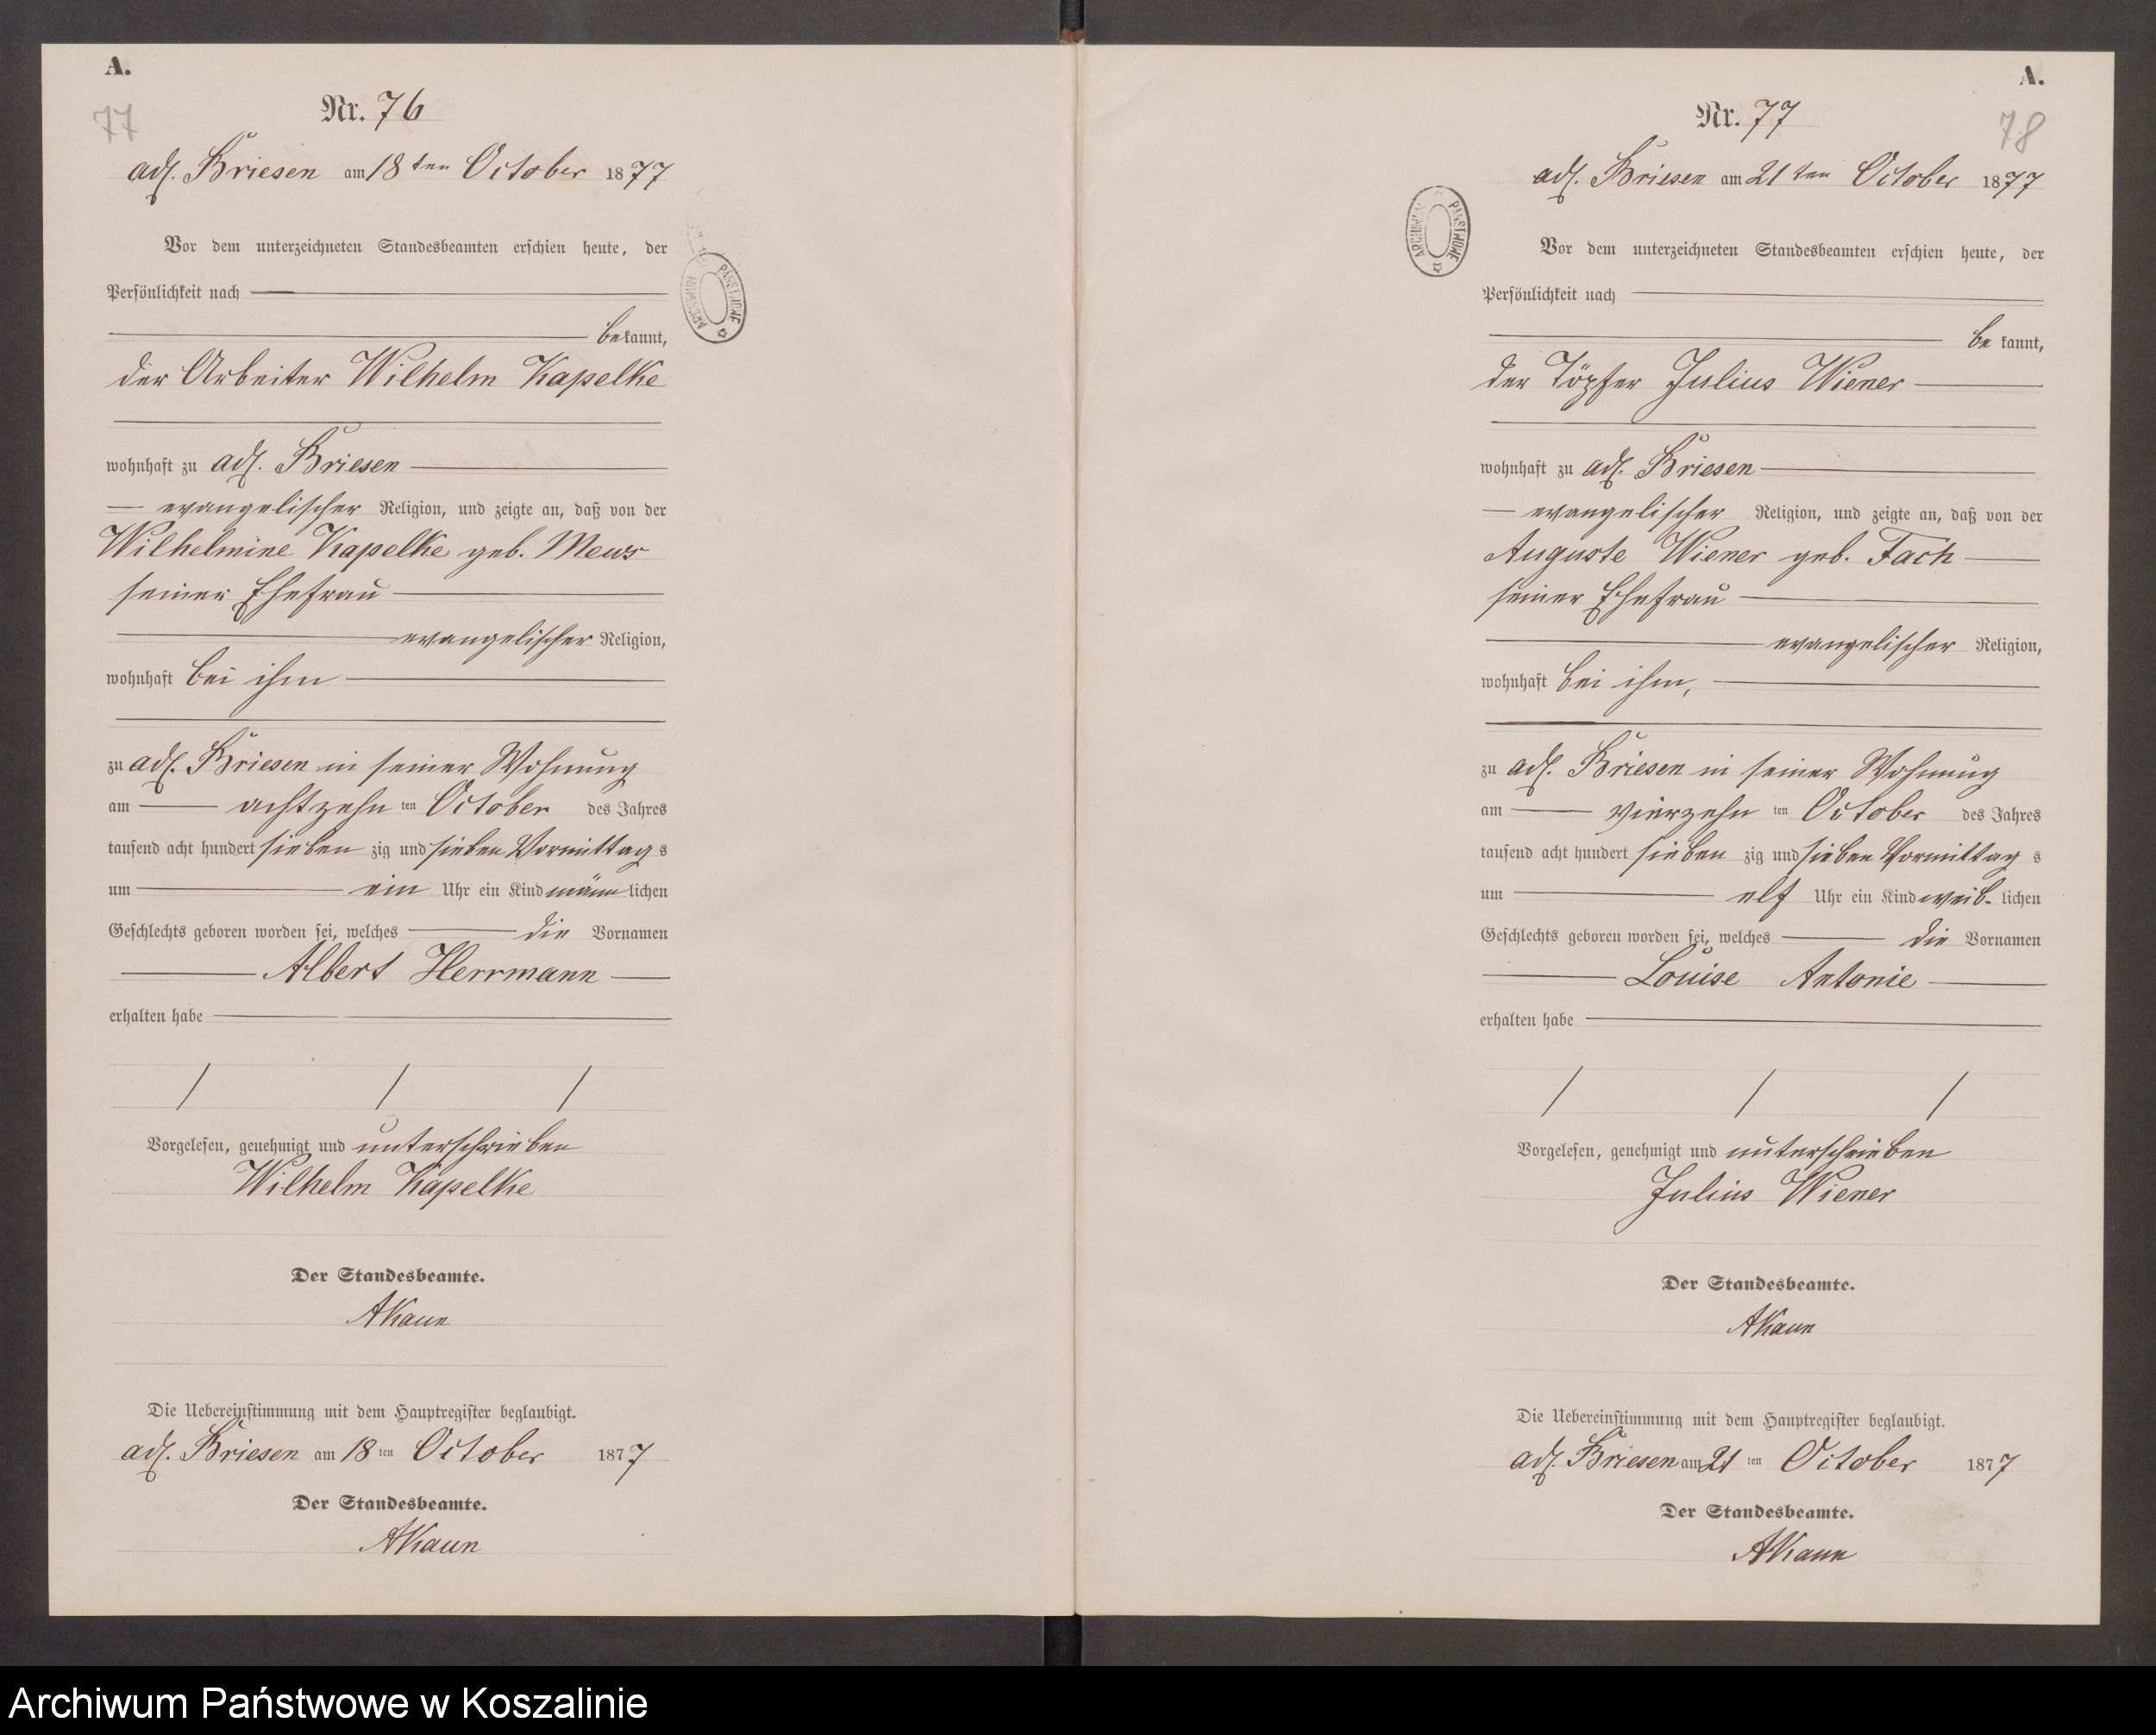 A.
77
Nr. 76
adl. Briesen am 18ten October 1877
Vor dem unterzeichneten Standesbeamten erschien heute, der
Persönlichkeit nach
bekannt,
der Arbeiter Wilhelm Kapelke
wohnhaft zu adl. Briesen
evangelischer Religion, und zeigte an, daß von der
Wilhelmine Kapelke geb. Mews
seiner Ehefrau
evangelischer Religion,
wohnhaft bei ihm
zu adl. Briesen in seiner Wohnung
am achtzehn ten October des Jahres
tausend acht hundert sieben zig und sieben Vormittag s
um ein Uhr ein Kind männlichen
Geschlechts geboren worden sei, welches die Vornamen
Albert Herrmann
erhalten habe
Vorgelesen, genehmigt und unterschrieben
Wilhelm Kapelke
Der Standesbeamte.
AKaun
Die Uebereinstimmung mit dem Hauptregister beglaubigt.
adl. Briesen am 18 ten October 1877
Der Standesbeamte.
AKaun
ARCHIWUM PAŃSTWOWE
A.
78
Nr. 77
adl. Briesen am 21ten October 1877
Vor dem unterzeichneten Standesbeamten erschien heute, der
Persönlichkeit nach
be kannt,
der Töpfer Julius Wiener
wohnhaft zu adl. Briesen
evangelischer Religion, und zeigte an, daß von der
Auguste Wiener geb. Fach
seiner Ehefrau
evangelischer Religion,
wohnhaft bei ihm,
zu adl. Briesen in seiner Wohnung
am vierzehn ten October des Jahres
tausend acht hundert sieben zig und sieben Vormittag s
um elf Uhr ein Kind weib- lichen
Geschlechts geboren worden sei, welches die Vornamen
Louise Antonie
erhalten habe
Vorgelesen, genehmigt und unterschrieben
Julius Wiener
Der Standesbeamte.
AKaun
Die Uebereinstimmung mit dem Hauptregister beglaubigt.
adl. Briesen am 21 ten October 1877
Der Standesbeamte.
AKaun
ARCHIWUM PAŃSTWOWE
Archiwum Państwowe w Koszalinie